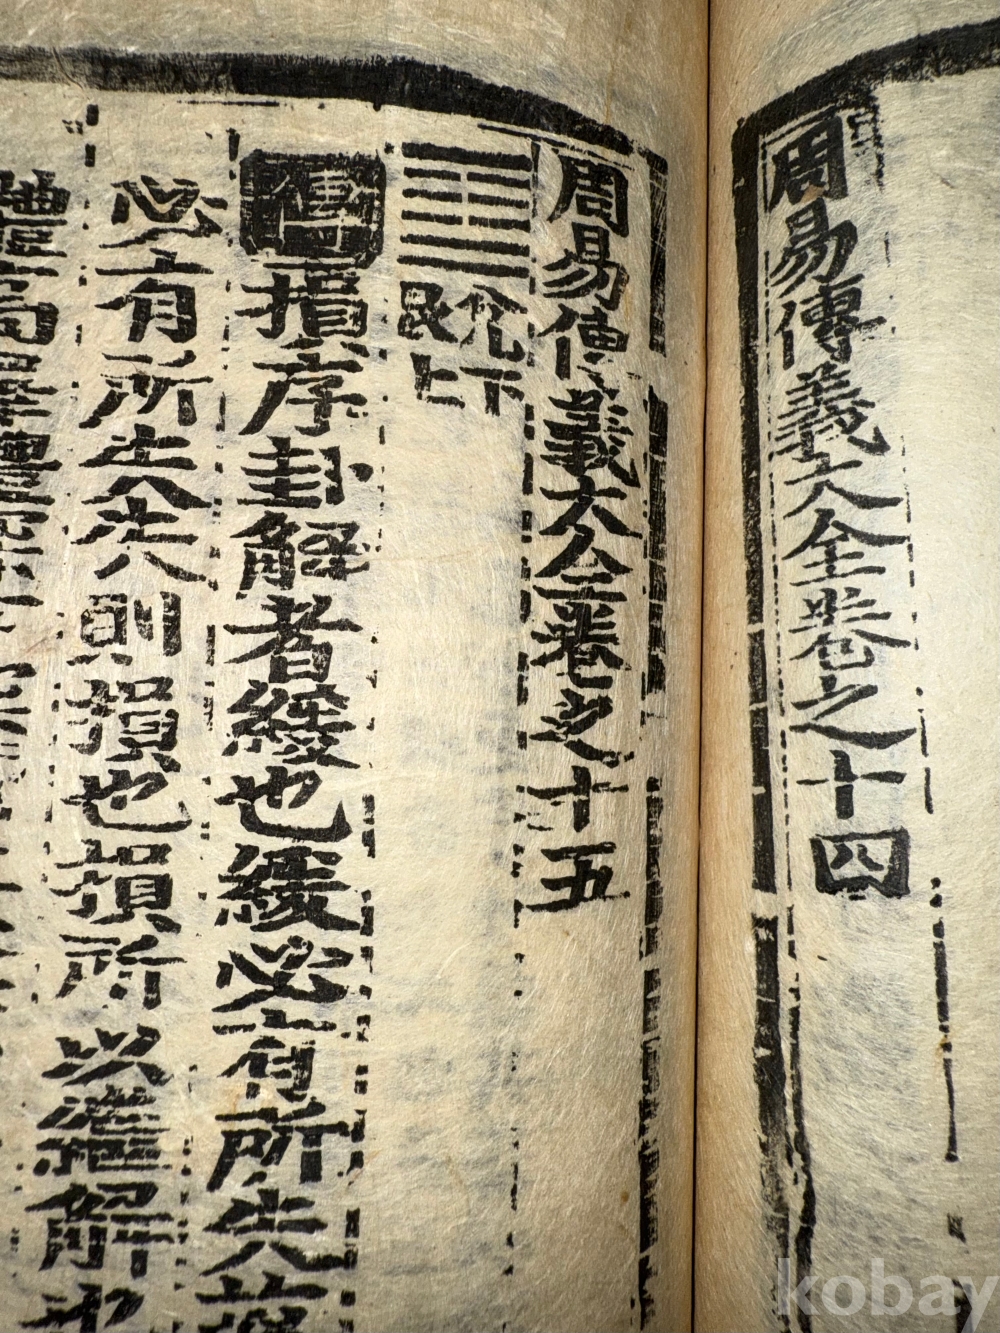 周易傳義大全卷之十四
周易傳義大全卷之十五
兌下
艮上
傳損序卦解者緩也緩必有所失故
必有所失失則損也損所以繼解也
kobay